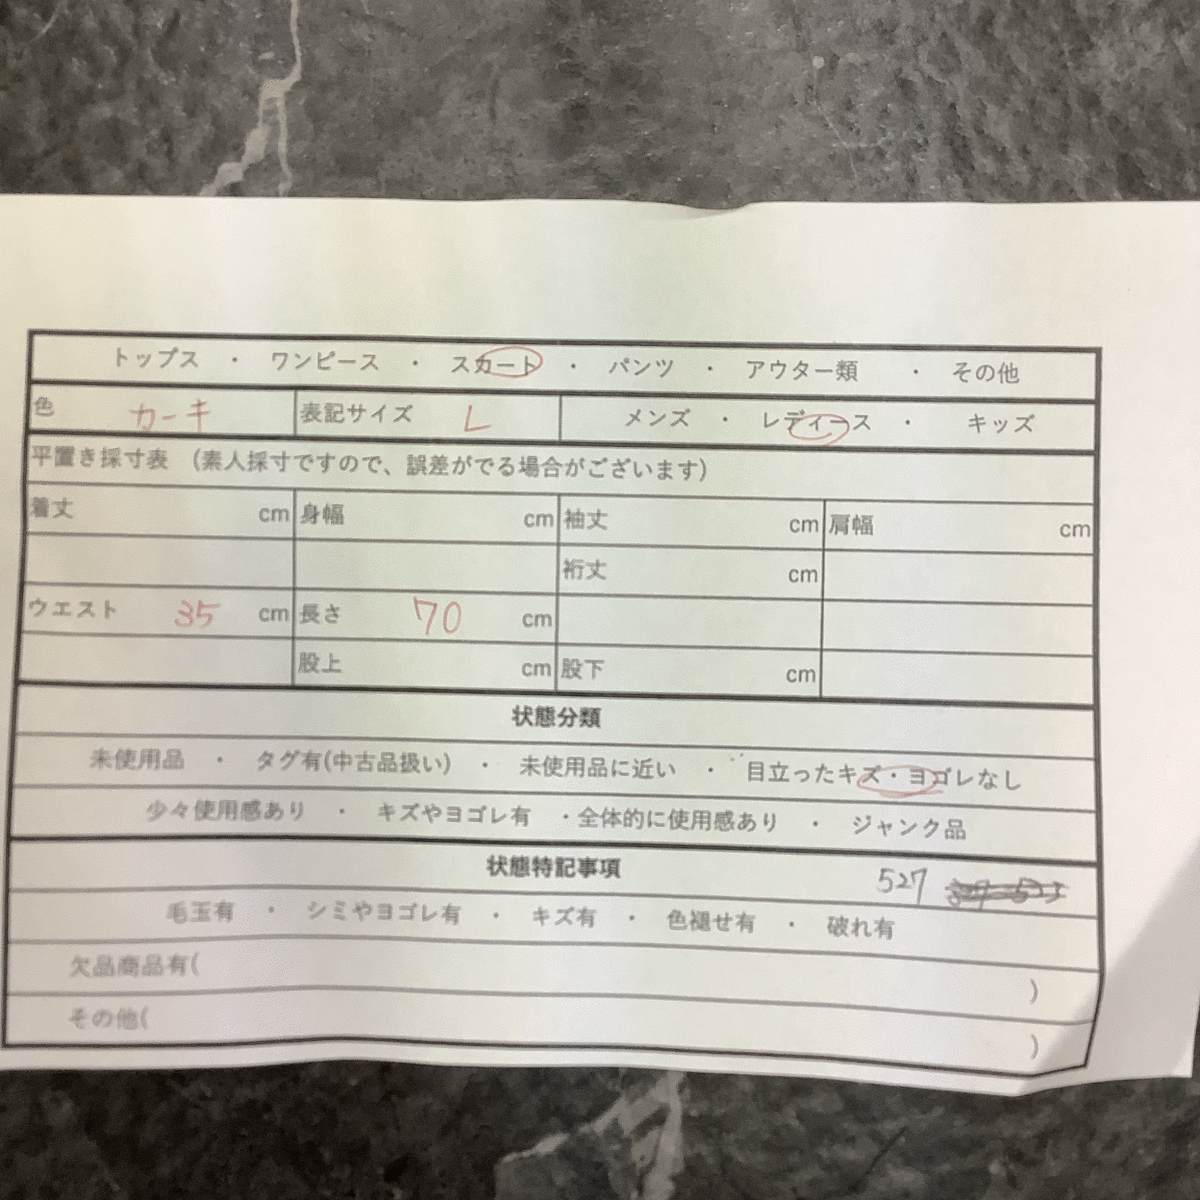 トップス ・ ワンピース ・ スカート ・ パンツ ・ アウター類 ・ その他
色 カーキ 表記サイズ L メンズ ・ レディース ・ キッズ
平置き採寸表 (素人採寸ですので、誤差がでる場合がございます)
着丈 cm 身幅 cm 袖丈 cm 肩幅 cm
裄丈 cm
ウエスト 35 cm 長さ 70 cm
股上 cm 股下 cm
状態分類
未使用品 ・ タグ有(中古品扱い) ・ 未使用品に近い ・ 目立ったキズ・ヨゴレなし
少々使用感あり ・ キズやヨゴレ有 ・全体的に使用感あり ・ ジャンク品
状態特記事項 527
毛玉有 ・ シミやヨゴレ有 ・ キズ有 ・ 色褪せ有 ・ 破れ有
欠品商品有( )
その他( )